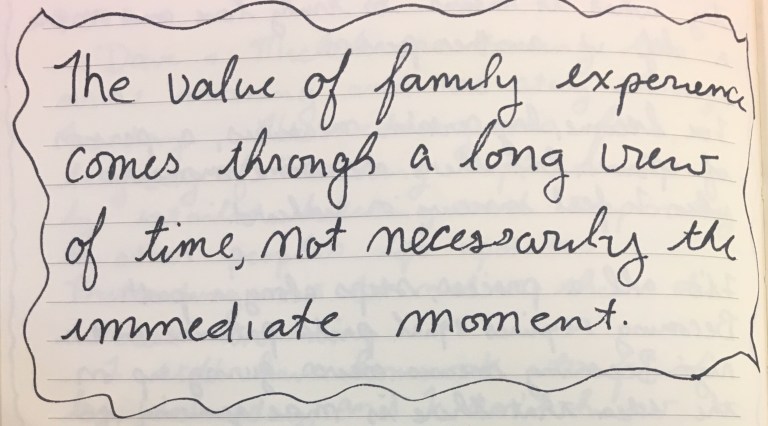 The value of family experience
comes through a long view
of time, not necessarily the
immediate moment.